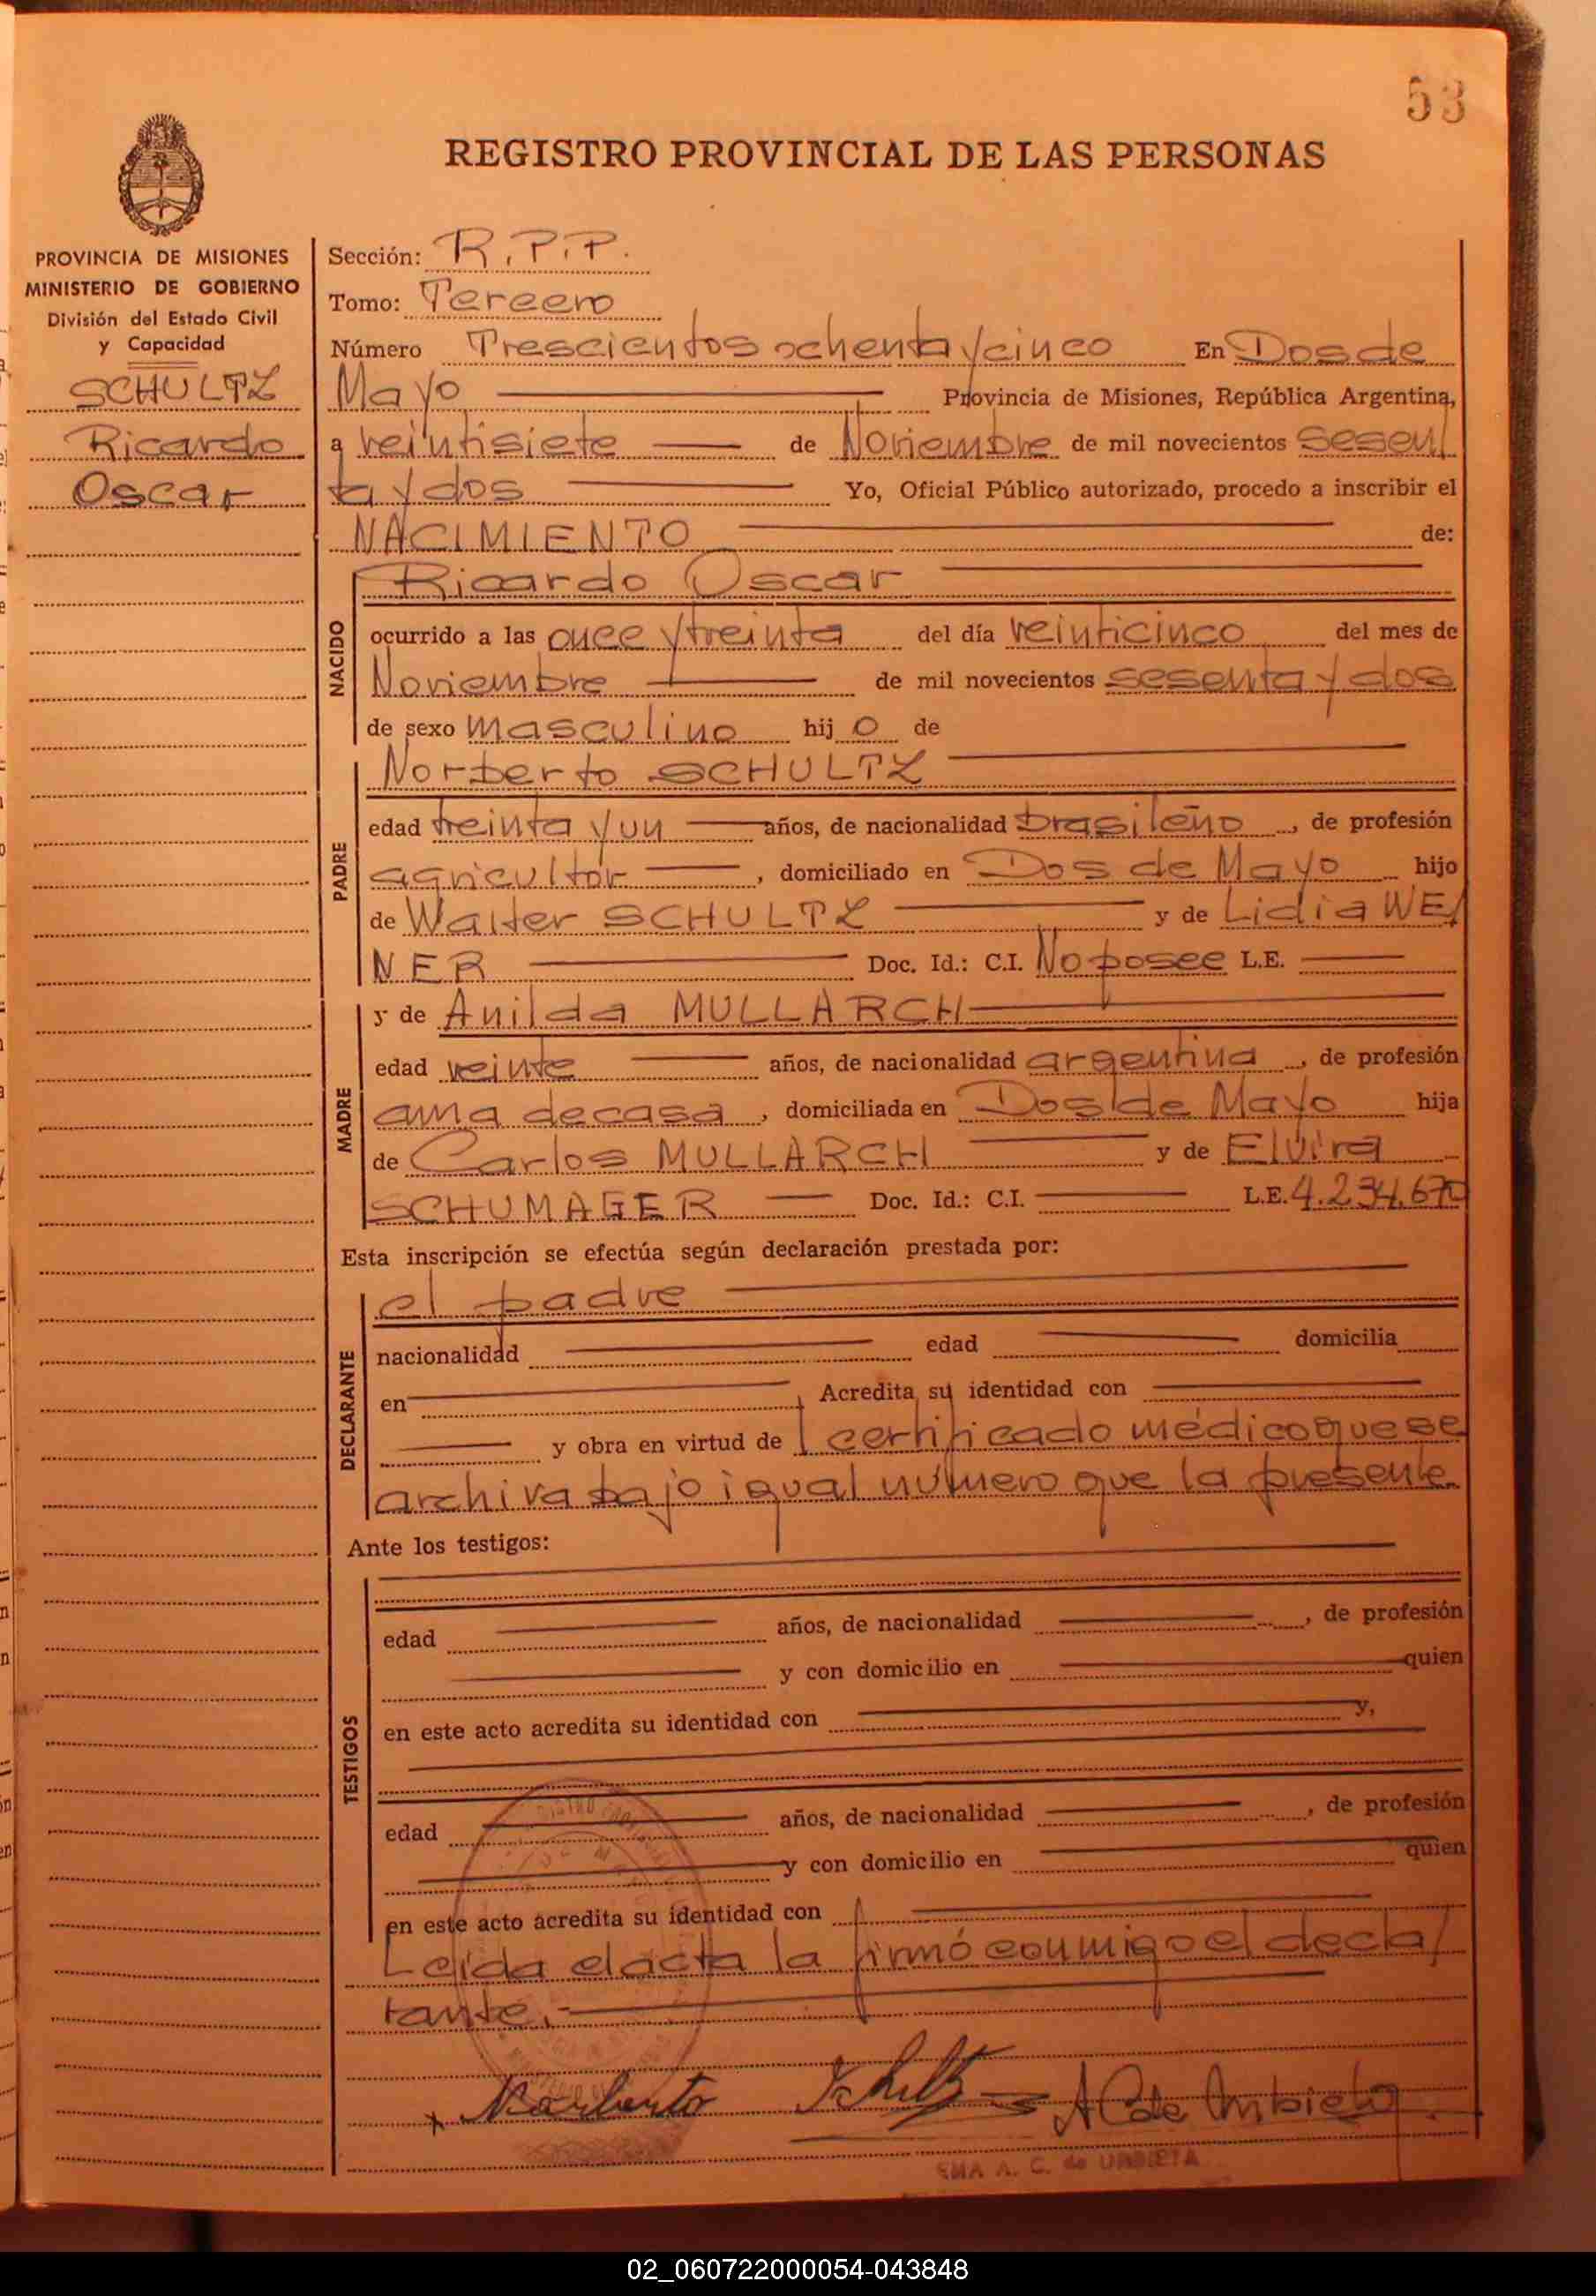 53
REGISTRO PROVINCIAL DE LAS PERSONAS
PROVINCIA DE MISIONES
MINISTERIO DE GOBIERNO
División del Estado Civil
y Capacidad
SCHULTZ
Ricardo
Oscar
Sección: R.P.P.
Tomo: Tercero
Número Trescientos ochenta y cinco En Dos de
Mayo Provincia de Misiones, República Argentina,
a veintisiete de Noviembre de mil novecientos sesen/
ta y dos Yo, Oficial Público autorizado, procedo a inscribir el
NACIMIENTO de:
NACIDO
Ricardo Oscar
ocurrido a las once y treinta del día veinticinco del mes de
Noviembre de mil novecientos sesenta y dos
de sexo masculino hijo de
PADRE
Norberto SCHULTZ
edad treinta y un años, de nacionalidad brasileño, de profesión
agricultor, domiciliado en Dos de Mayo hijo
de Walter SCHULTZ y de Lidia WE/
NER Doc. Id.: C.I. No posee L.E.
MADRE
y de Anilda MULLARCH
edad veinte años, de nacionalidad argentina, de profesión
ama de casa, domiciliada en Dos de Mayo hija
de Carlos MULLARCH y de Elvira
SCHUMAGER Doc. Id.: C.I. L.E. 4.234.670
Esta inscripción se efectúa según declaración prestada por:
DECLARANTE
el padre
nacionalidad edad domicilia
en Acredita su identidad con
y obra en virtud de certificado médico que se
archiva bajo igual número que la presente
Ante los testigos:
TESTIGOS
edad años, de nacionalidad , de profesión
y con domicilio en quien
en este acto acredita su identidad con y,
edad años, de nacionalidad , de profesión
y con domicilio en quien
en este acto acredita su identidad con
Leída el acta la firmó conmigo el decla/
rante.-
x Norberto Schultz A C de Urbieta
EMA A. C. de URBIETA
02_060722000054-043848